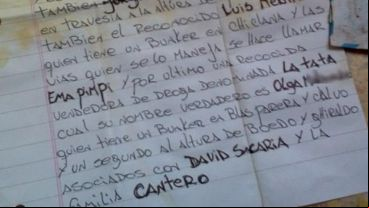 TAMBIEN
EN TRAVESIA A LA ALTURA DE
TAMBIEN EL RECONOCIDO LUIS
QUIEN TIENE UN BUNKER EN CHICLANA Y LAS
VIAS QUIEN SE LO MANEJA SE HACE LLAMAR
EMA PIMPI Y POR ULTIMO UNA RECOCIDA
VENDEDORA DE DROGA DENOMINADA LA TATA
CUAL SU NOMBRE VERDADERO ES OLGA
QUIEN TIENE UN BUNKER EN BLAS PARERA Y CALVO
Y UN SEGUNDO AL ALTURA DE BOEDO Y GHIRALDO
ASOCIADOS CON DAVID Y LA
FAMILIA CANTERO